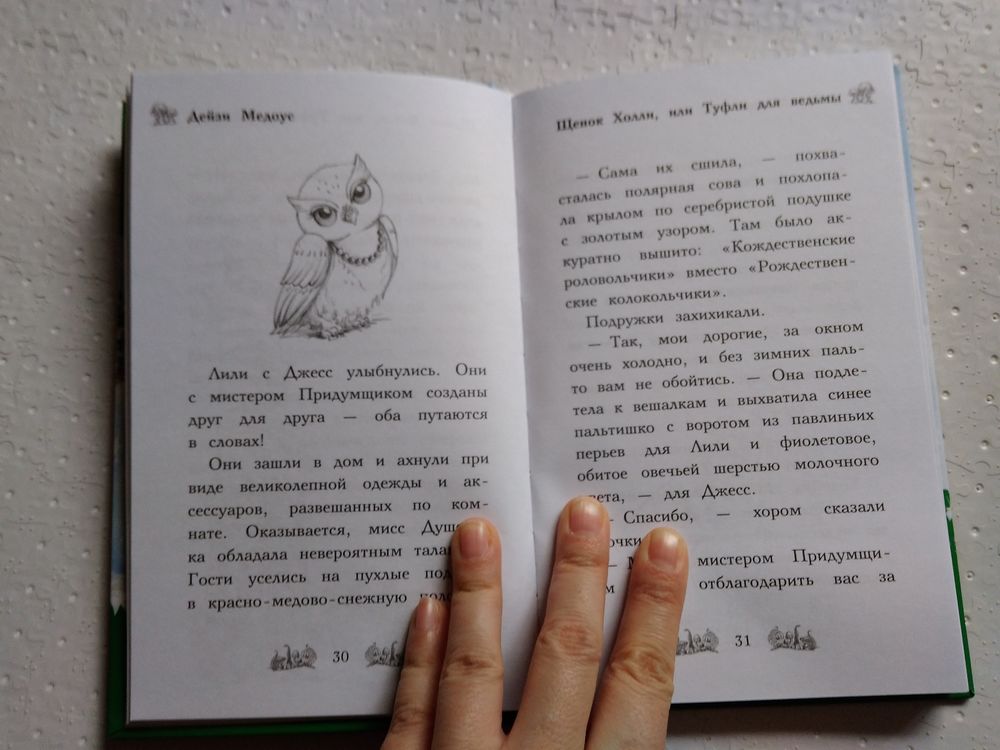 Дейзи Медоус
Лили с Джесс улыбнулись. Они
с мистером Придумщиком созданы
друг для друга — оба путаются
в словах!
Они зашли в дом и ахнули при
виде великолепной одежды и ак-
сессуаров, развешанных по ком-
нате. Оказывается, мисс
ка обладала невероятным
Гости уселись на пухлые
в красно-медово-снежную
30
Щенок Холли, или Туфли для ведьмы
— Сама их сшила, — похва-
сталась полярная сова и похлопа-
ла крылом по серебристой подушке
с золотым узором. Там было ак-
куратно вышито: «Кождественские
роловольчики» вместо «Рождествен-
ские колокольчики».
Подружки захихикали.
— Так, мои дорогие, за окном
очень холодно, и без зимних паль-
то вам не обойтись. — Она подле-
тела к вешалкам и выхватила синее
пальтишко с воротом из павлиньих
перьев для Лили и фиолетовое,
обитое овечьей шерстью молочного
— для Джесс.
— Спасибо, — хором сказали
мистером Придумщи-
отблагодарить вас за
31